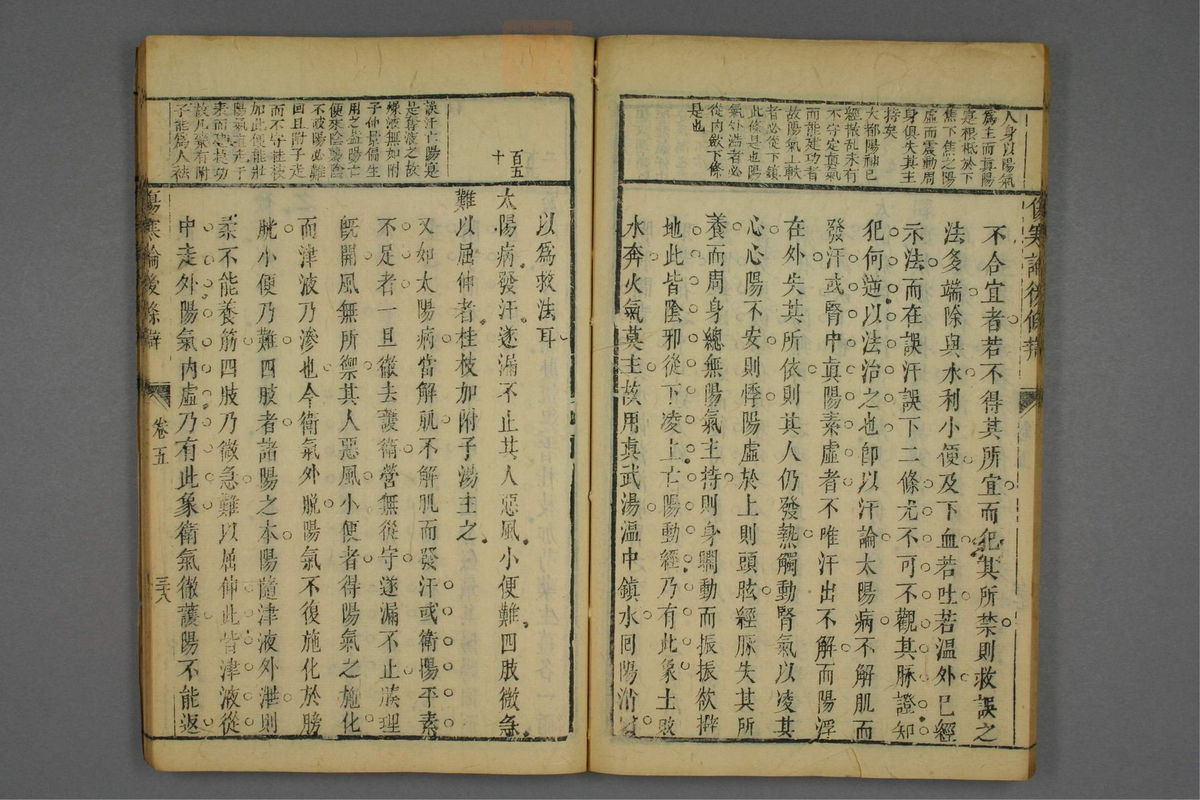 人身以陽氣
爲主而眞陽
寔根柢於下
焦下焦之陽
虛而震動周
身俱失其主
持矣
大都陽神已
經散乱未有
不守定眞氣
而能建功者
故陽氣上軼
者必從下鎮
此條是也陽
氣外浩者必
從内斂下條
是也
傷寒論後條辯
不合宜者若不得其所宜而犯其所禁則救誤之
法多端除與水利小便及下血若吐若温外已經
示法而在誤汗誤下二條尤不可不觀其脉證知
犯何逆以法治之也卽以汗論太陽病不解肌而
發汗或腎中眞陽素虛者不唯汗出不解而陽浮
在外失其所依則其人仍發熱觸動腎氣以凌其
心心陽不安則悸陽虛於上則頭眩經脉失其所
養而周身總無陽氣主持則身瞤動而振振欲擗
地此皆陰邪從下凌上亡陽動經乃有此象土敗
水奔火氣莫主故用眞武湯温中鎮水回陽消
百五
十
誤汗亡陽寔
是奪液之故
縁液無如附
子仲景偏生
用之盖陽亡
便來陰陽陰
不破陽必難
回且附子走
而不守桂枝
加此便能駈
陽氣直走于
裏而建其功
故凡藥有附
子能爲人祛
以爲救法耳
太陽病發汗遂漏不止其人惡風小便難四肢微急
難以屈伸者桂枝加附子湯主之
又如太陽病當解肌不解肌而發汗或衛陽平素
不足者一旦徹去護衛營無從守遂漏不止腠理
旣開風無所禦其人惡風小便者得陽氣之施化
而津液乃滲也今衛氣外脱陽氣不後施化於膀
胱小便乃難四肢者諸陽之本陽隨津液外泄則
柔不能養筋四肢乃微急難以屈伸此皆津液從
中走外陽氣内虛乃有此象衛氣徹護陽不能返
傷寒論後條辯
卷五
三六